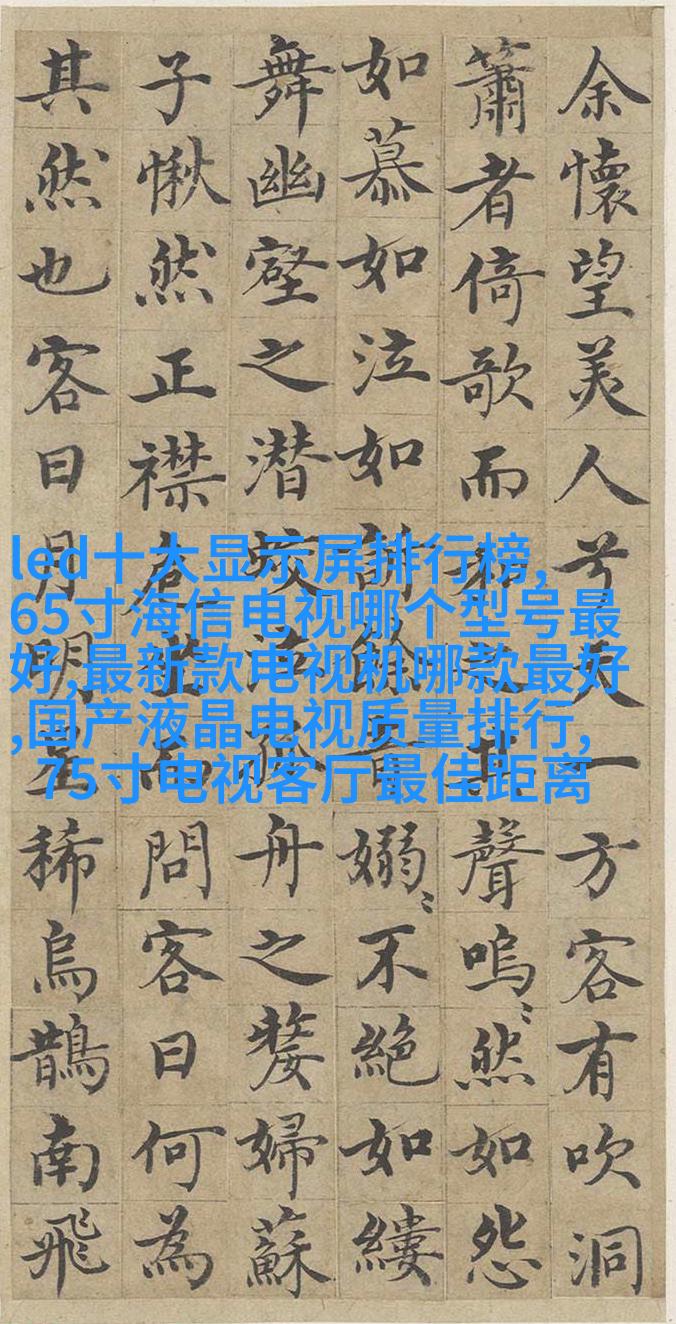 余懷望美人兮天一方客有吹洞
簫者倚歌而和之其聲嗚〻然如怨
如慕如泣如訴餘音嫋〻不絕如縷
舞幽壑之潛蛟泣孤舟之嫠婦蘇
子愀然正襟危坐而問客曰何為
其然也客曰月明星稀烏鵲南飛
led十大显示屏排行榜,
65寸海信电视哪个型号最
好,最新款电视机哪款最好
,国产液晶电视质量排行,
75寸电视客厅最佳距离